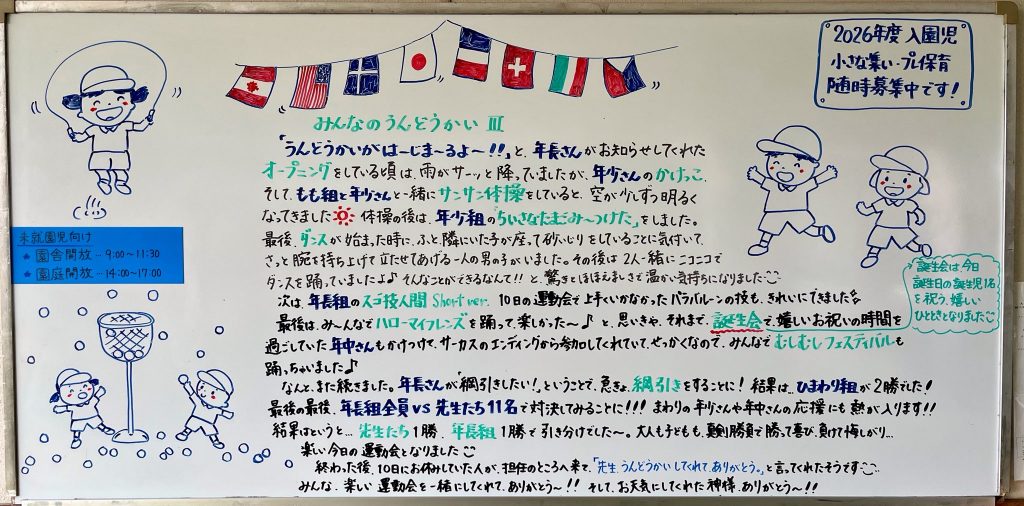 2026年度 入園児
小さな集い・プレ保育
随時募集中です!
みんなのうんどうかい Ⅲ
「うんどうかいがはーじま~るよ~!!」と、年長さんがお知らせしてくれた
オープニングをしている頃は、雨がサーッと降っていましたが、年少さんのかけっこ、
そして、もも組と年少さんと一緒にサンサン体操をしていると、空が少しずつ明るく
なってきました 体操の後は、年少組の「ちいさなたまごみ~つけた」をしました。
最後、ダンスが始まった時に、ふと、隣にいた子が座って砂いじりをしていることに気付いて、
さっと腕を持ち上げて立たせてあげる一人の男の子がいました。その後は2人一緒にニコニコで
ダンスを踊っていましたよ♪ そんなことができるなんて!! と、驚きとほほえましさで温かい気持ちになりました
次は、年長組のスゴ技人間 Short ver. 10日の運動会で上手くいかなかったパラバルーンの技も、きれいにできました
最後は、み~んなでハローマイフレンズを踊って、楽しかった~♪ と、思いきや、それまで、誕生会で、嬉しいお祝いの時間を
過ごしていた年中さんもかけつけて、サーカスのエンディングから参加してくれていて、せっかくなので、みんなでむしむしフェスティバルも
踊っちゃいました♪
なんと、まだ続きました。年長さんが「綱引きしたい!」ということで、急きょ、綱引きをすることに! 結果は、ひまわり組が2勝でした!
最後の最後、年長組全員vs先生たち11名で対決してみることに!!! まわりの年少さんや年中さんの応援にも熱が入ります!!
結果はというと… 先生たち1勝、年長組1勝で引き分けでした~。大人も子どもも、真剣勝負で勝って喜び、負けて悔しがり…
楽しい今日の運動会となりました
終わった後、10日にお休みしていた人が、担任のところへ来て、「先生、うんどうかいしてくれて、ありがとう。」と言ってくれたそうです
みんな、楽しい運動会を一緒にしてくれて、ありがとう~!! そして、お天気にしてくれた神様、ありがとう~!!
誕生会は、今日
誕生日の誕生児1名
を祝う、嬉しい
ひとときとなりました
未就園児向け
★ 園舎開放…9:00~11:30
★ 園庭開放…14:00~17:00